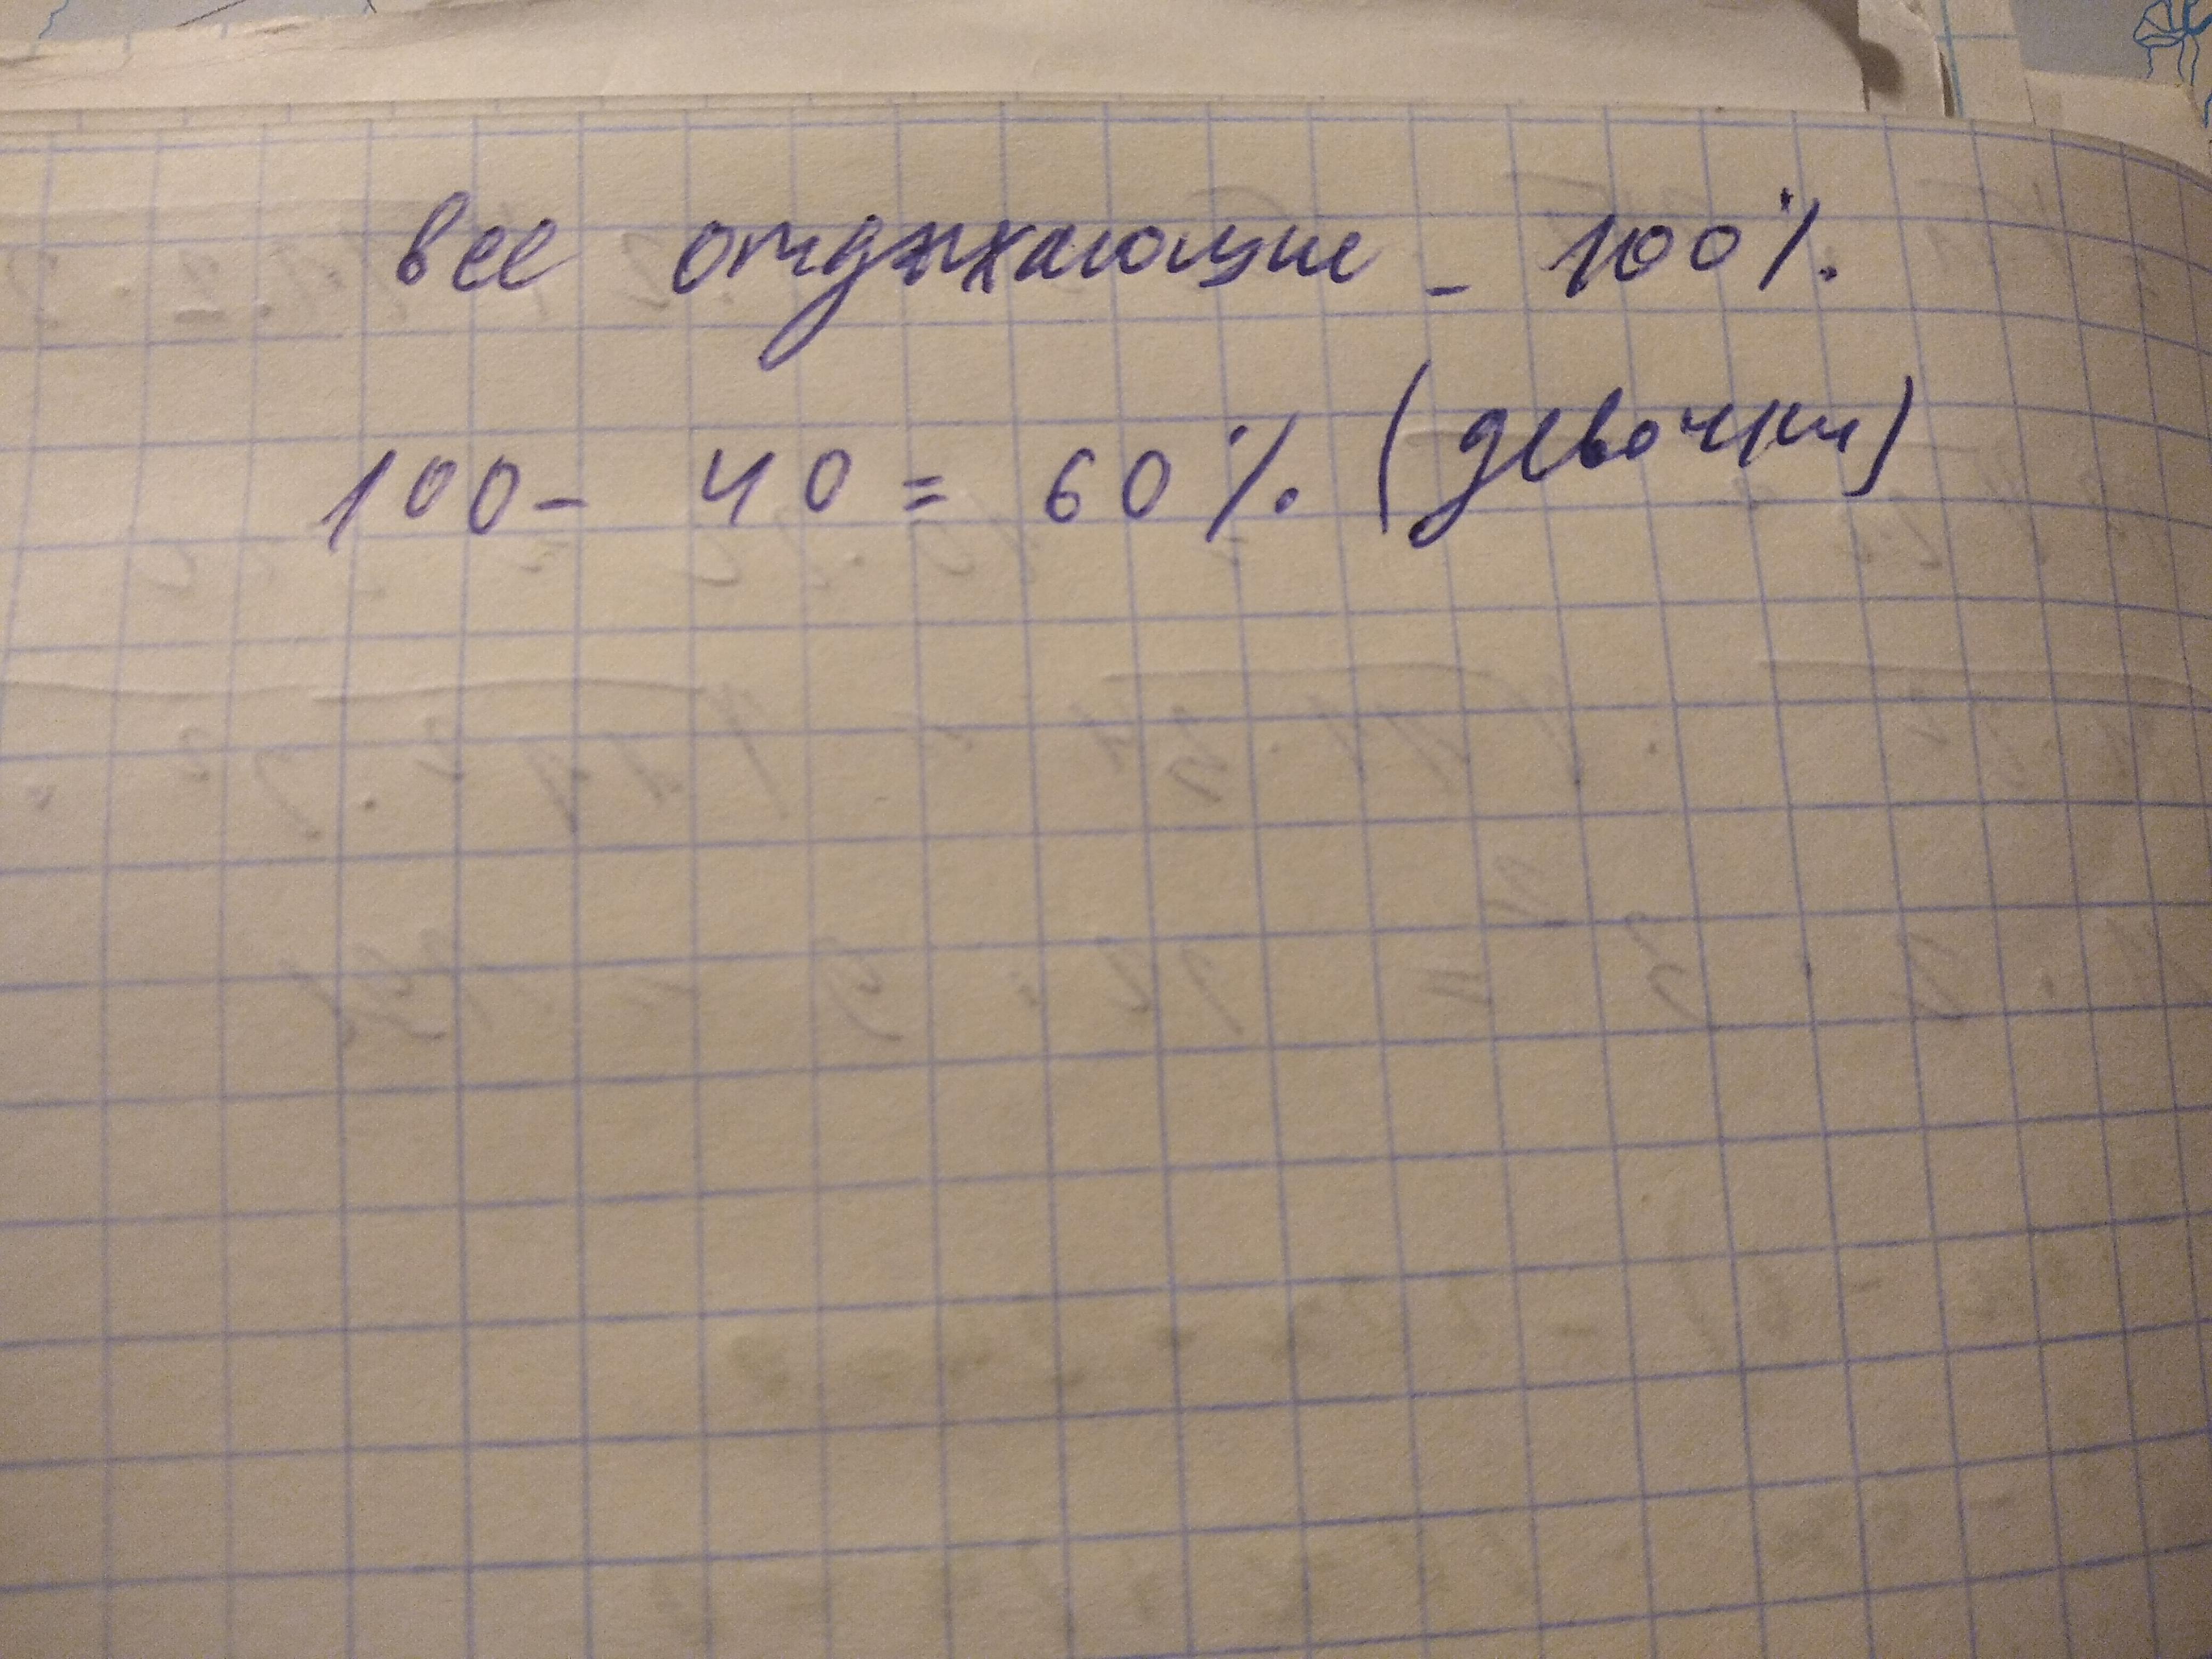 все отдыхающие - 100%.
100 - 40 = 60%. (девочки)